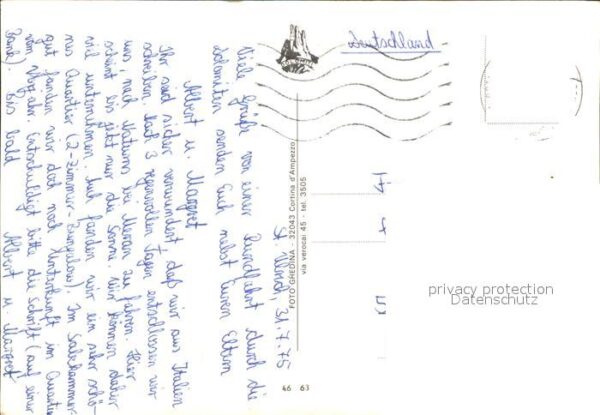 Deutschland
St. Ulrich, 31.7.75
Viele Grüße von einer Rundfahrt durch die
Dolomiten senden Euch nebst Euren Eltern
Albert u. Margret
Ihr seid sicher verwundert, daß wir aus Italien
schreiben. Nach 3 regenvollen Tagen entschlossen wir
uns, nach Naturns bei Meran zu fahren. Hier
scheint bis jetzt nur die Sonne. Wir können daher
viel unternehmen. Auch fanden wir ein sehr schö-
nes Quartier (2-Zimmer-Bungalow). Im Salzkammer-
gut fanden wir doch noch Unterkunft im Quartier
vom Vorjahr. Entschuldigt bitte die Schrift (auf einer
Bank). Bis bald
Albert u. Margret
FOTO GHEDINA - 32043 Cortina d'Ampezzo
via verocai 45 - tel. 3505
46 63
privacy protection
Datenschutz